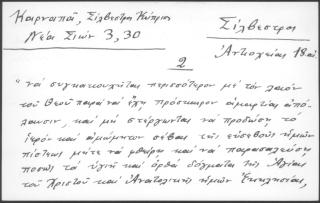 Καρναπᾶ, Σίλβεστρος Κύπριος
Νέα Σιών 3, 30
Σίλβεστρος
Ἀντιοχείας 18 αἰ
2
"νά συγκακουχῆται περισσότερον μέ τόν λαόν
τοῦ Θεοῦ παρά νά ἔχῃ πρόσκαιρον ἁμαρτίας ἀπό-
λαυσιν, καί μή στέργωνται νά προδώσῃ τό
ἱερόν καί ἀμώμητον σέβας τῆς εὐσεβοῦς ἡμῶν
πίστεως μήτε νά φθείρῃ καί νά παρασαλεύσῃ
ποσῶς τά ὑγιῆ καί ὀρθά δόγματα τῆς Ἁγίας
τοῦ Χριστοῦ καί Ἀνατολικῆς ἡμῶν Ἐκκλησίας,